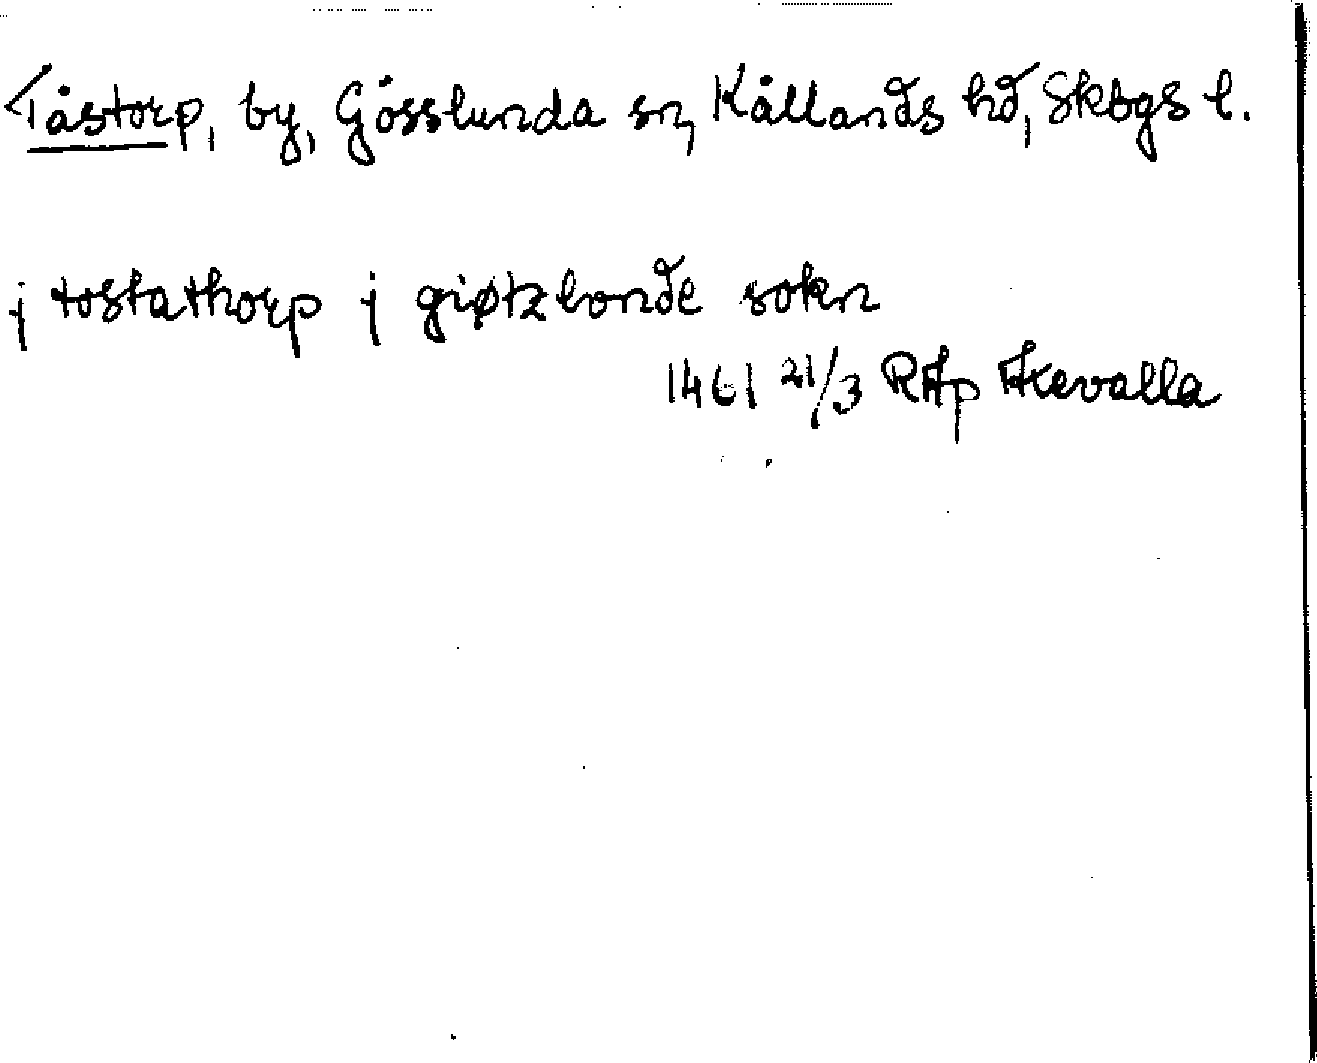 Tåstorp, by, Gösslunda sn, Kållands hd, Skbgs l.
j tostathorp j giøtzlonde sokn
1461 21/3 RAp Akevalla